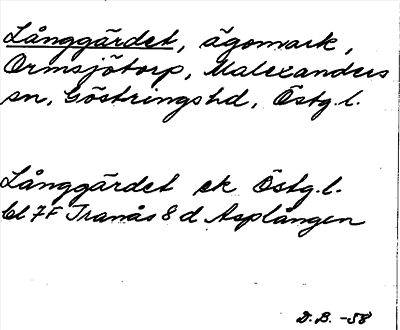 Långgärdet, ägomark,
Ormsjötorp, Malexanders
sn, Göstringshd, Östg.l.
Långgärdet ek Östg.l.
bl 7F Tranås 8 d Asplången
D.B. -58